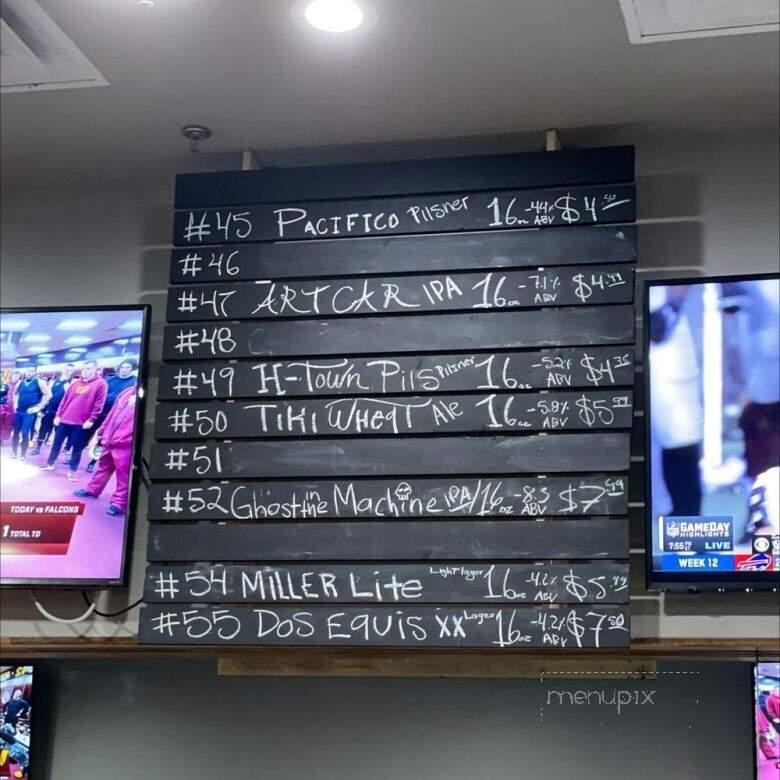 #45 PACIFICO Pilsner 16oz -44% ABV $4
#46
#47 ART CAR IPA 16oz -7.1% ABV $4.99
#48
#49 H-Town Pils Pilsner 16oz -5.2% ABV $4.75
#50 TIKI WHeaT Ale 16oz -5.8% ABV $5.99
#51
#52 Ghost in the Machine IPA/16oz -8.5 ABV $7.49
#54 MILLER Lite Light lager 16oz -4.2% ABV $5.99
#55 Dos EQUIS XX Lager 16oz -4.2% ABV $7.50
TODAY vs FALCONS
1 TOTAL TD
NFL GAMEDAY
HIGHLIGHTS
7:55 LIVE
WEEK 12
menupix